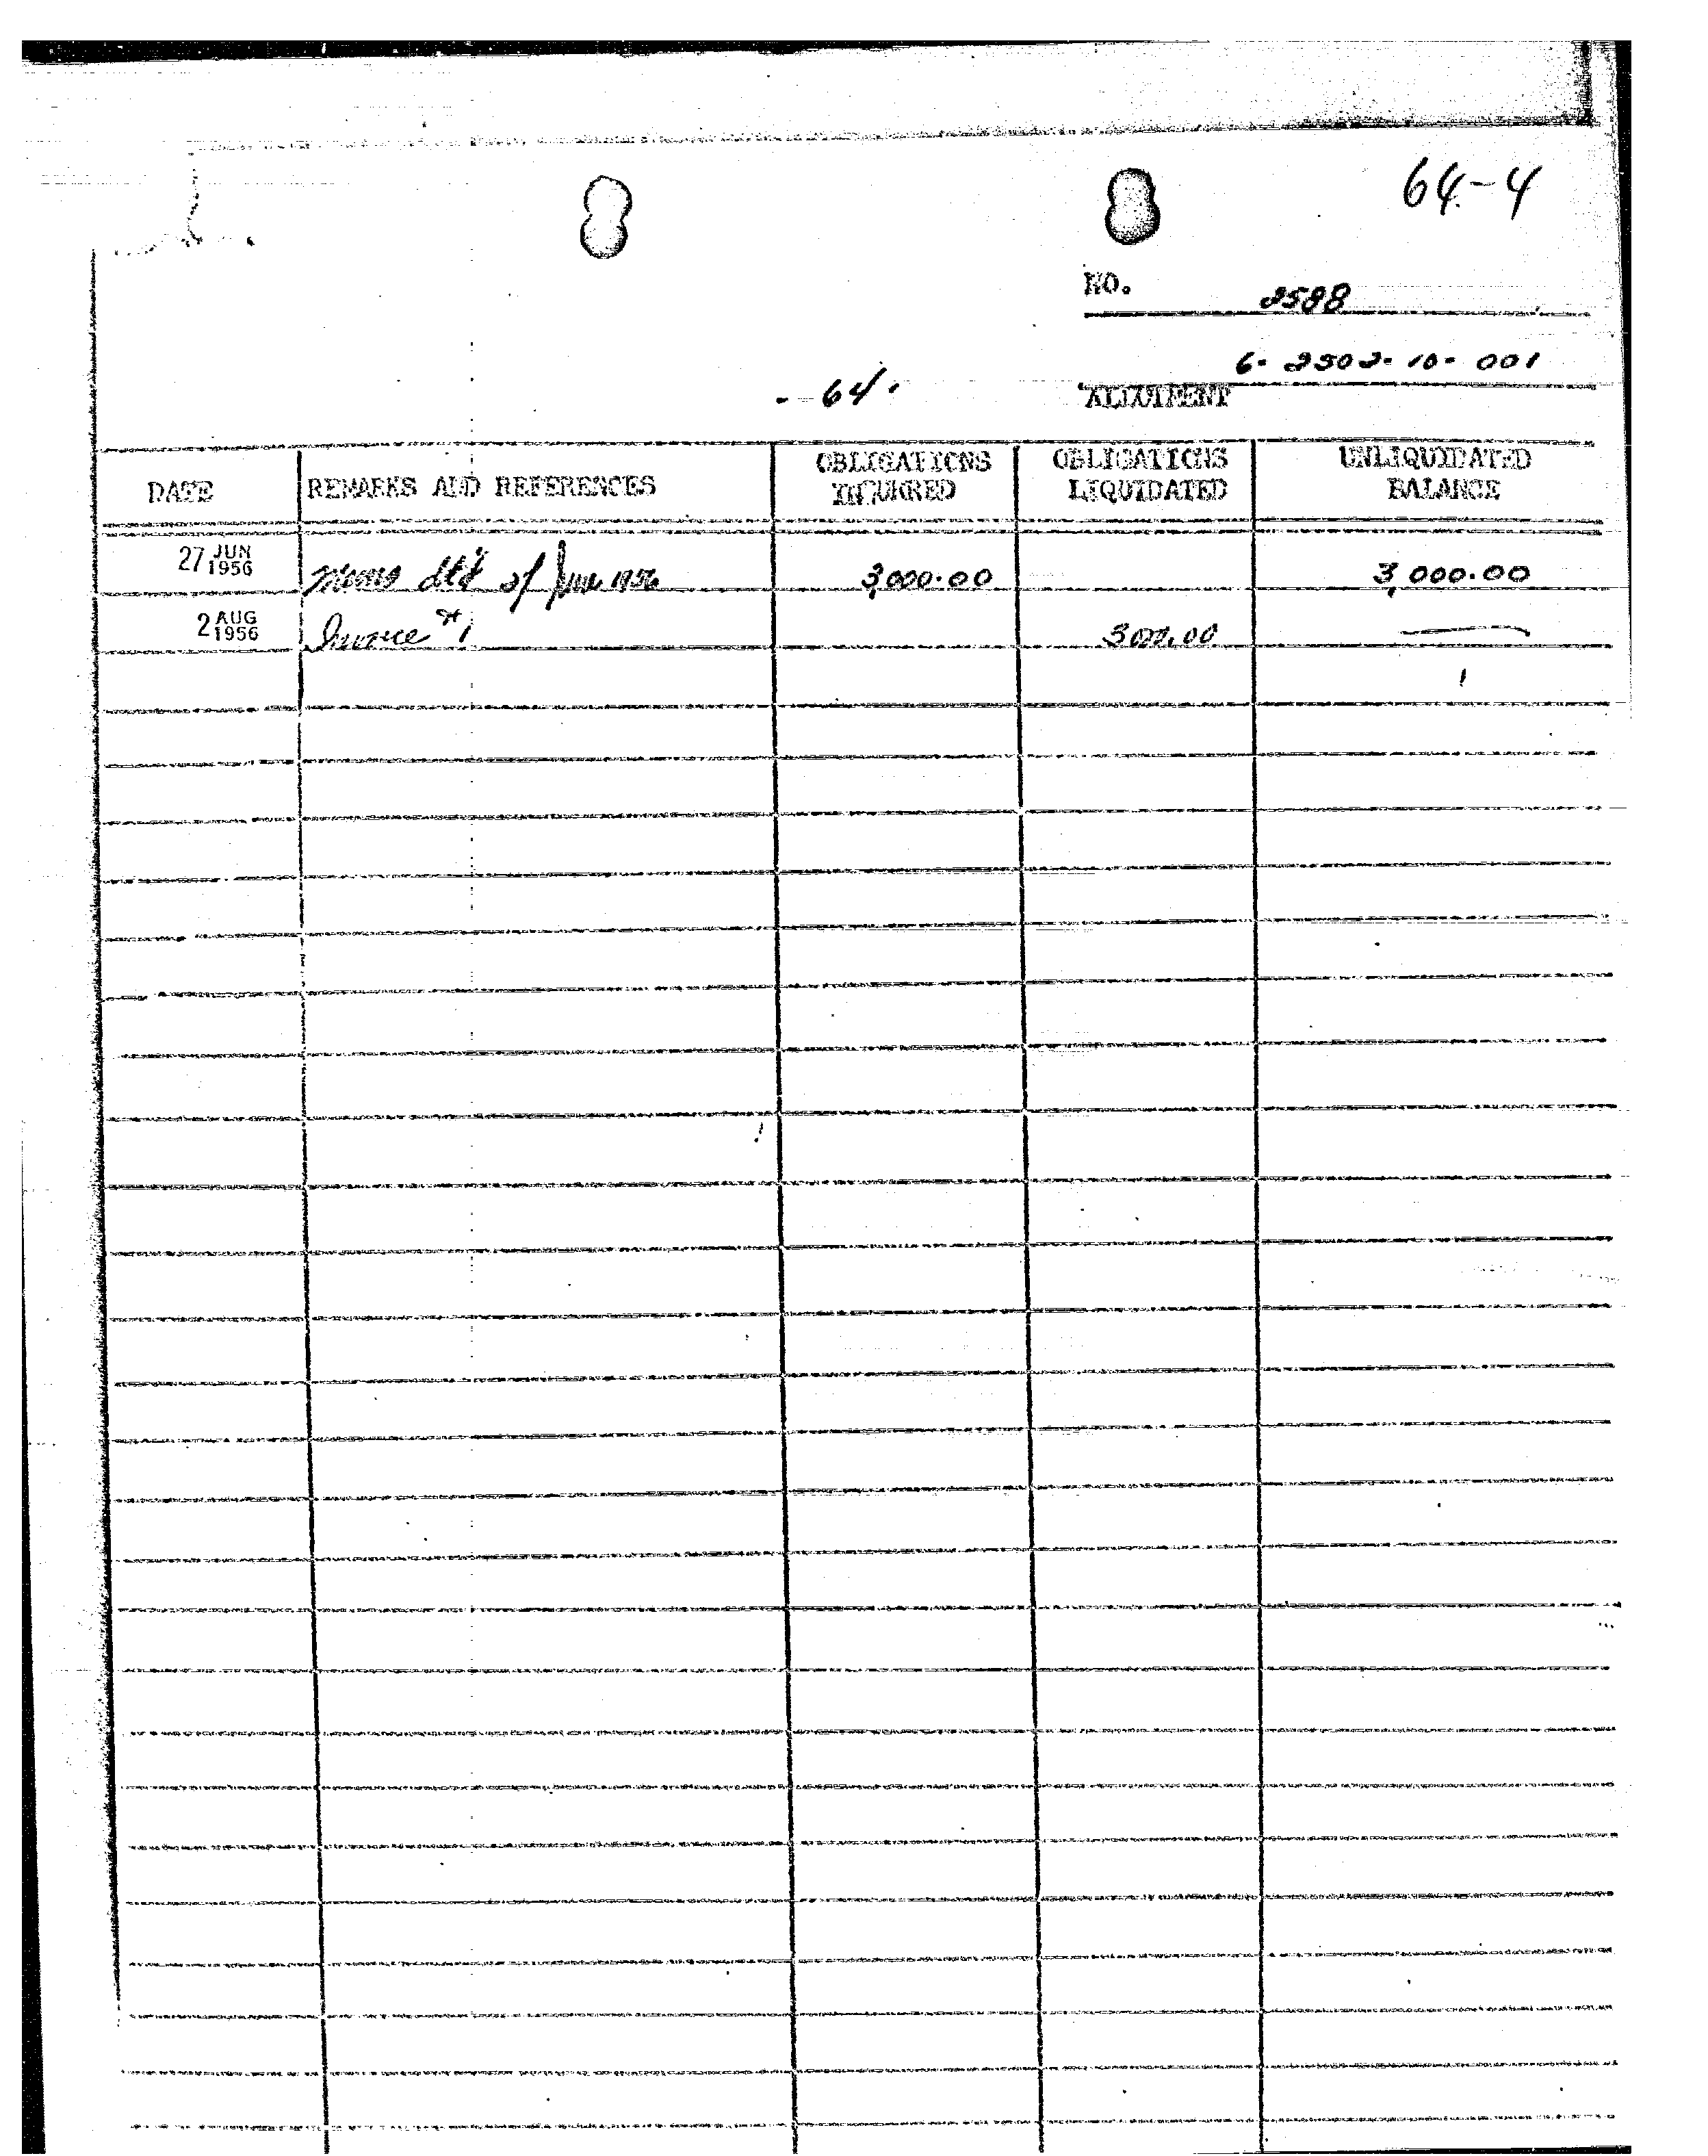 64-4
NO. 2588
6-2502-10-001
-64.
ALLOTMENT
DATE REMARKS AND REFERENCES OBLIGATIONS INCURRED OBLIGATIONS LIQUIDATED UNLIQUIDATED BALANCE
27 JUN 1956 Memo dtd of June 1956 3,000.00 3,000.00
2 AUG 1956 Invoice #1 3000.00 —